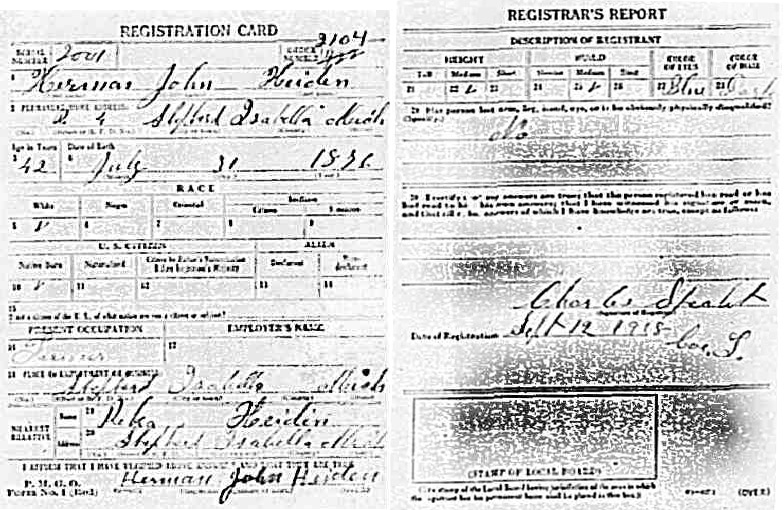 REGISTRATION CARD
SERIAL NUMBER 2001 ORDER NUMBER 3104
1 Herman John Heiden
2 PERMANENT HOME ADDRESS:
R. 4 Shepherd Isabella Mich
Age in Years Date of Birth
3 42 4 July 31
RACE
White Negro Oriental Indian
Citizen Noncitizen
5 ✓ 6 7 8 9
U. S. CITIZEN ALIEN
Native Born Naturalized Citizen by Father's Naturalization Before Registrant's Majority Declarant Non-declarant
10 ✓ 11 12 13 14
15
If not a citizen of the U. S., of what nation are you a citizen or subject?
PRESENT OCCUPATION EMPLOYER'S NAME
16 Farmer 17
18 PLACE OF EMPLOYMENT OR BUSINESS:
Shepherd Isabella Mich
NEAREST RELATIVE Name 19 Heiden
Address 20 Shepherd Isabella Mich
I AFFIRM THAT I HAVE VERIFIED ABOVE ANSWERS AND THAT THEY ARE TRUE
P. M. G. O.
Form No. 1 (Red) Herman John Heiden
REGISTRAR'S REPORT
DESCRIPTION OF REGISTRANT
HEIGHT BUILD COLOR OF EYES COLOR OF HAIR
Tall Medium Short Slender Medium Stout
21 22 ✓ 23 24 25 ✓ 26 27 Blue 28 Dark
29 Has person lost arm, leg, hand, eye, or is he obviously physically disqualified?
(Specify.)
No
30 I certify that my answers are true; that the person registered has read or has
had read to him his own answers; that I have witnessed his signature or mark,
and that all of his answers of which I have knowledge are true, except as follows:
Charles
(Signature of Registrar)
Date of Registration Sept 12 1918
(STAMP OF LOCAL BOARD)
(The stamp of the Local Board having jurisdiction of the area in which
the registrant has his permanent home shall be placed in this box.)
(OVER)